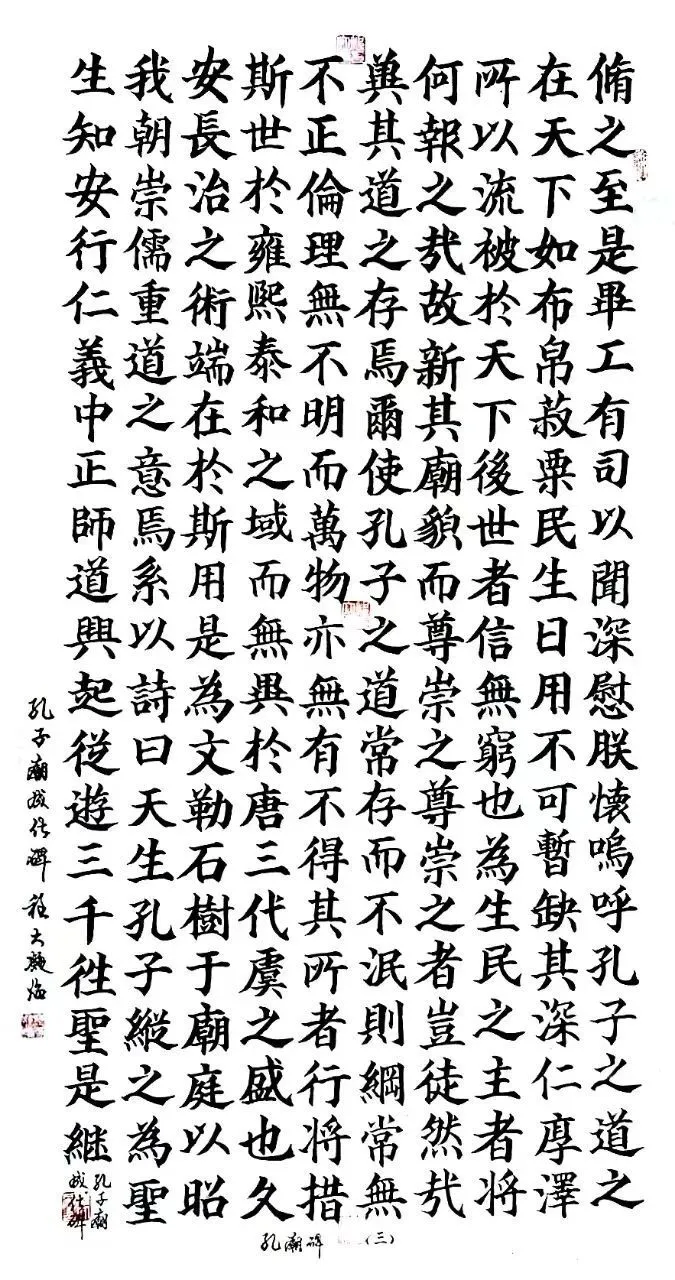 脩之至是畢工有司以聞深慰朕懐嗚呼孔子之道之
在天下如布帛菽粟民生日用不可暫缺其深仁厚澤
所以流被於天下後世者信無窮也為生民之主者将
何報之哉故新其廟貌而尊崇之尊崇之者豈徒然哉
冀其道之存焉爾使孔子之道常存而不泯則綱常無
不正倫理無不明而萬物亦無有不得其所者行将措
斯世於雍熙泰和之域而無異於唐三代虞之盛也久
安長治之術端在於斯用是為文勒石樹于廟庭以昭
我朝崇儒重道之意焉系以詩曰天生孔子縱之為聖
生知安行仁義中正師道興起從遊三千徃聖是継
孔子廟
成化碑
孔子廟成化碑
孔廟碑（三）